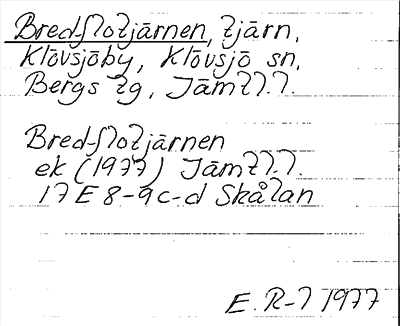 Bred-flotjärnen, tjärn,
Klövsjöby, Klövsjö sn,
Bergs tg, Jämtl.l.
Bred-flotjärnen
ek (1977) Jämtl.l.
17E 8-9c-d Skålan
E. R-l 1977